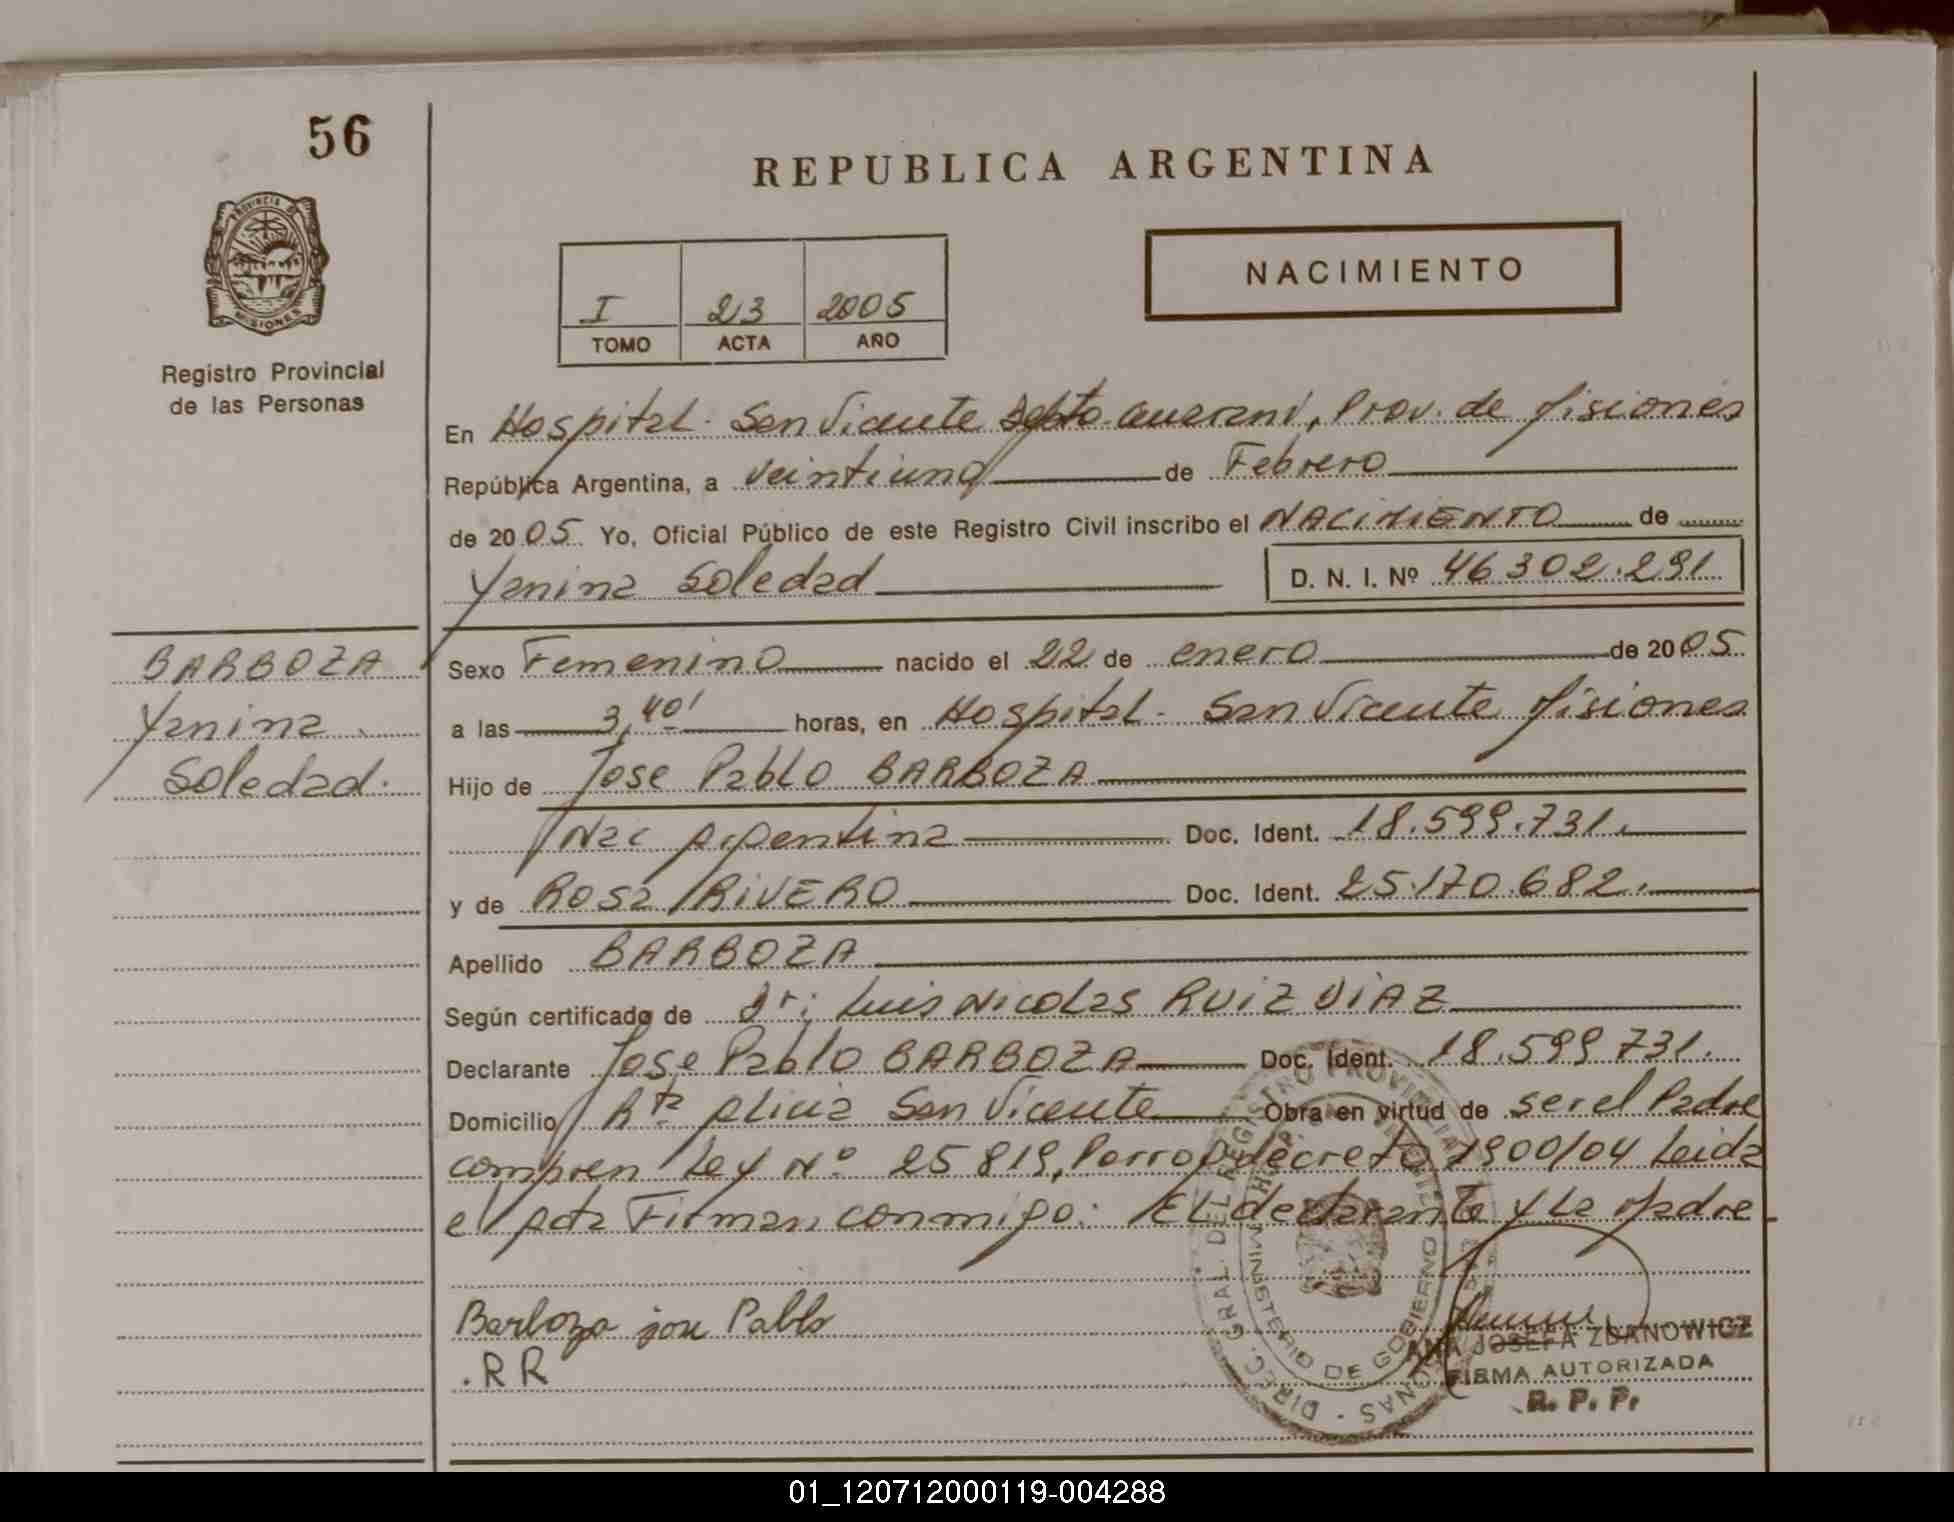 56
REPUBLICA ARGENTINA
PROVINCIA DE
MISIONES
Registro Provincial
de las Personas
NACIMIENTO
I 23 2005
TOMO ACTA AÑO
En Hospital - San Vicente Depto Guarani, Prov. de Misiones
República Argentina, a veintiuno de Febrero
de 2005 Yo, Oficial Público de este Registro Civil inscribo el NACIMIENTO de
Yanina Soledad D. N. I. Nº 46302.291
BARBOZA
Yanina
Soledad.
Sexo Femenino nacido el 22 de enero de 2005
a las 3,40' horas, en Hospital - San Vicente Misiones
Hijo de Jose Pablo BARBOZA
Nac Argentina Doc. Ident. 18.599.731.
y de Rosa RIVERO Doc. Ident. 25.170.682.
Apellido BARBOZA
Según certificado de Dr: Luis Nicolas RUIZ DIAZ
Declarante Jose Pablo BARBOZA Doc. Ident. 18.599 731.
Domicilio Rta Alicia San Vicente Obra en virtud de ser el Padre
compren Ley Nº 25819, decreto 1900/04 Leida
el Acta Firman conmigo: El declarante y La Madre
Barboza jose Pablo
.RR
DIREC. GRAL. DEL REGISTRO PROVINCIAL
MINISTERIO DE GOBIERNO
ANA JOSEFA ZDANOWICZ
FIRMA AUTORIZADA
R. P. P.
01_120712000119-004288